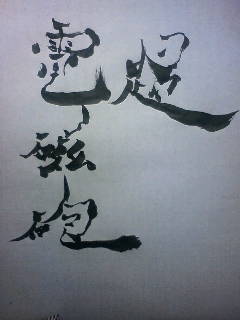 超
電磁砲